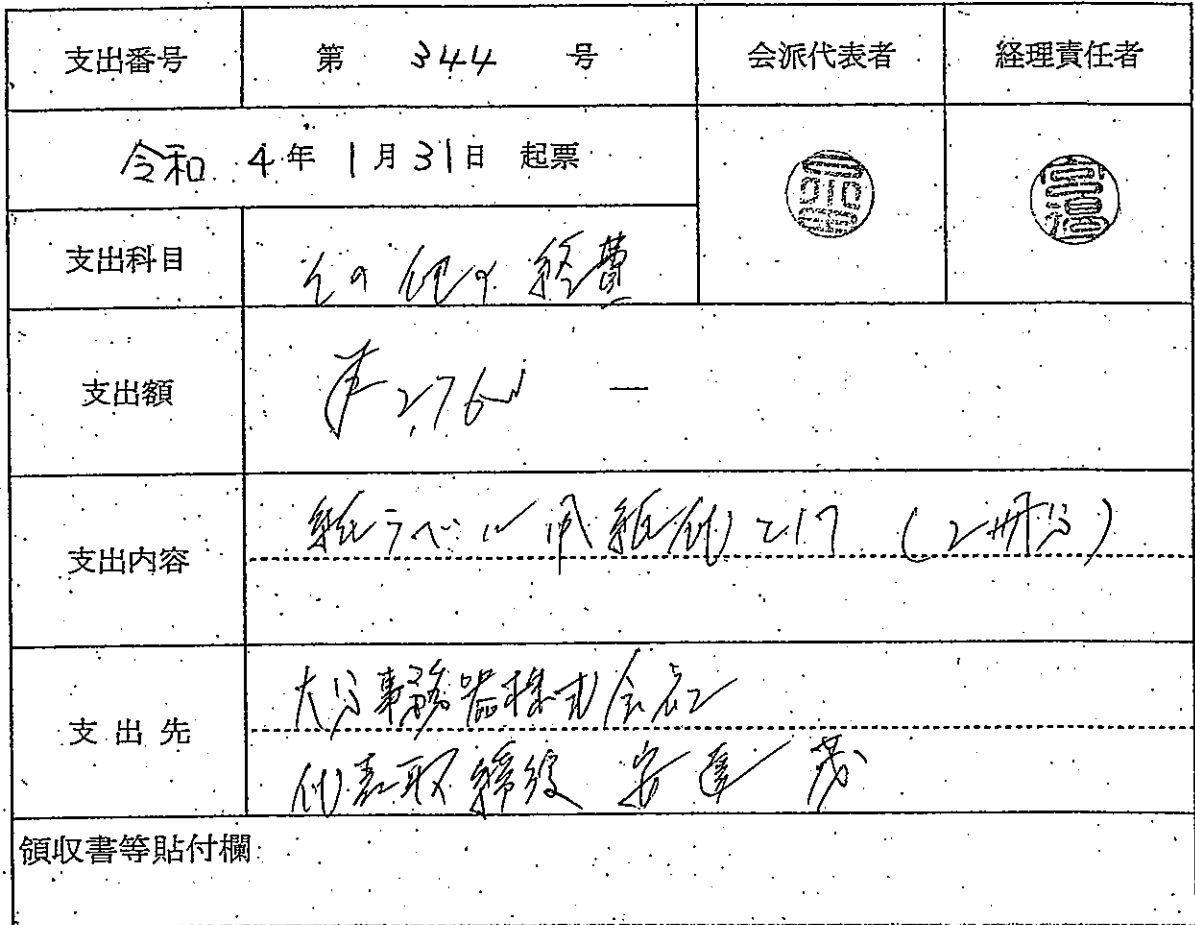 支出番号 第 344 号 会派代表者 経理責任者
令和 4年 1月31日 起票
支出科目 その他の経費
支出額
支出内容 紙ラベル用紙代として (2冊分)
支出先 大分事務器株式会社
代表取締役 安達 茂
領収書等貼付欄